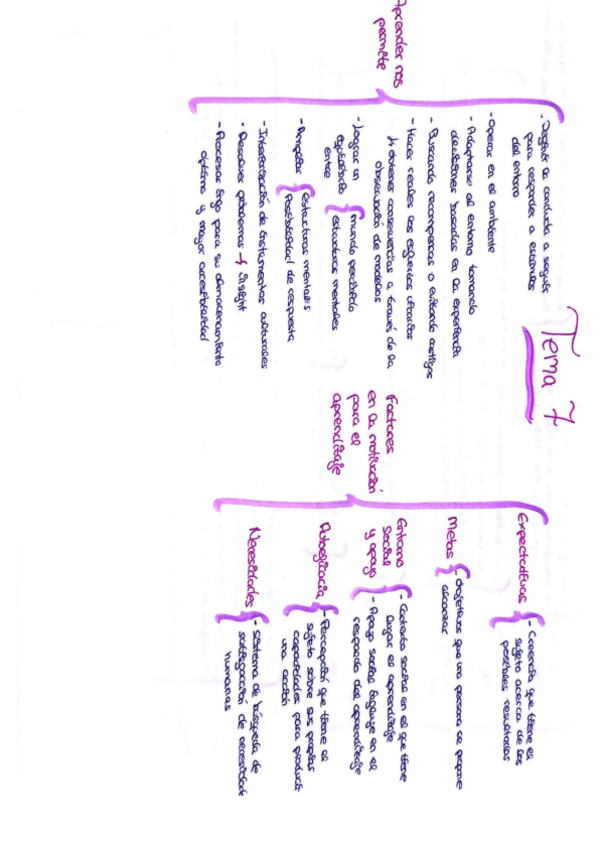 Tema 7
Aprender nos
permite
- Dirigir la conducta a seguir
para responder a estímulos
del entorno
- Operar en el ambiente
- Adaptarse al entorno tomando
decisiones basadas en la experiencia
- Buscando recompensas o evitando castigos
- Hacer reales los esquemas
↳ obtener consecuencias a través de la
observación de modelos
- Lograr un
equilibrio
entre
mundo percibido
estructuras mentales
- Ampliar
estructuras mentales
posibilidad de respuesta
- Interiorización de instrumentos culturales
- Resolver problemas → insight
- Procesar algo para su almacenamiento
óptimo y mayor accesibilidad
Factores
en la motivación
para el
aprendizaje
Expectativas
- Creencia que tiene el
sujeto acerca de los
posibles resultados
Metas
- Objetivos que una persona se propone
alcanzar
Entorno
social
y apoyo
- Contexto social en el que tiene
lugar el aprendizaje
- Apoyo social influye en el
respaldo del aprendizaje
Autoeficacia
- Percepción que tiene el
sujeto sobre sus propias
capacidades para producir
una acción
Necesidades
- Sistema de búsqueda de
satisfacción de necesidades
humanas